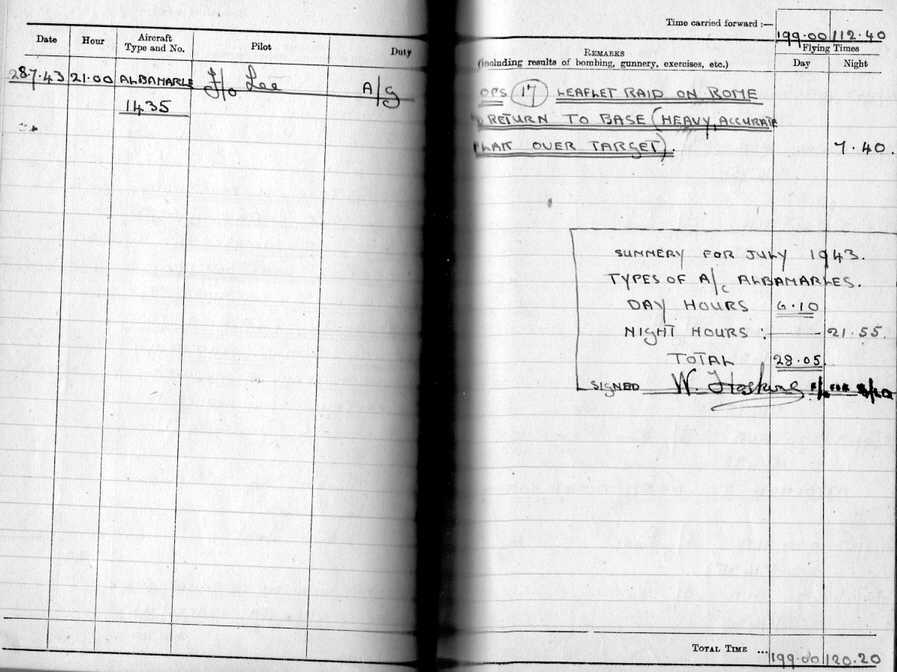 Time carried forward :— 199.00 112.40
Date Hour Aircraft Type and No. Pilot Duty
28.7.43 21.00 ALBAMARLE F/o Lee A/g
1435
REMARKS
(including results of bombing, gunnery, exercises, etc.)
Flying Times
Day Night
OPS 17 LEAFLET RAID ON ROME
RETURN TO BASE (HEAVY, ACCURATE
FLAK OVER TARGET). 7.40.
SUMMERY FOR JULY 1943.
TYPES OF A/c ALBAMARLES.
DAY HOURS 6.10
NIGHT HOURS : 21.55.
TOTAL 28.05.
SIGNED W. Hoskins F/L FOR S/LDR
TOTAL TIME ... 199.00 120.20